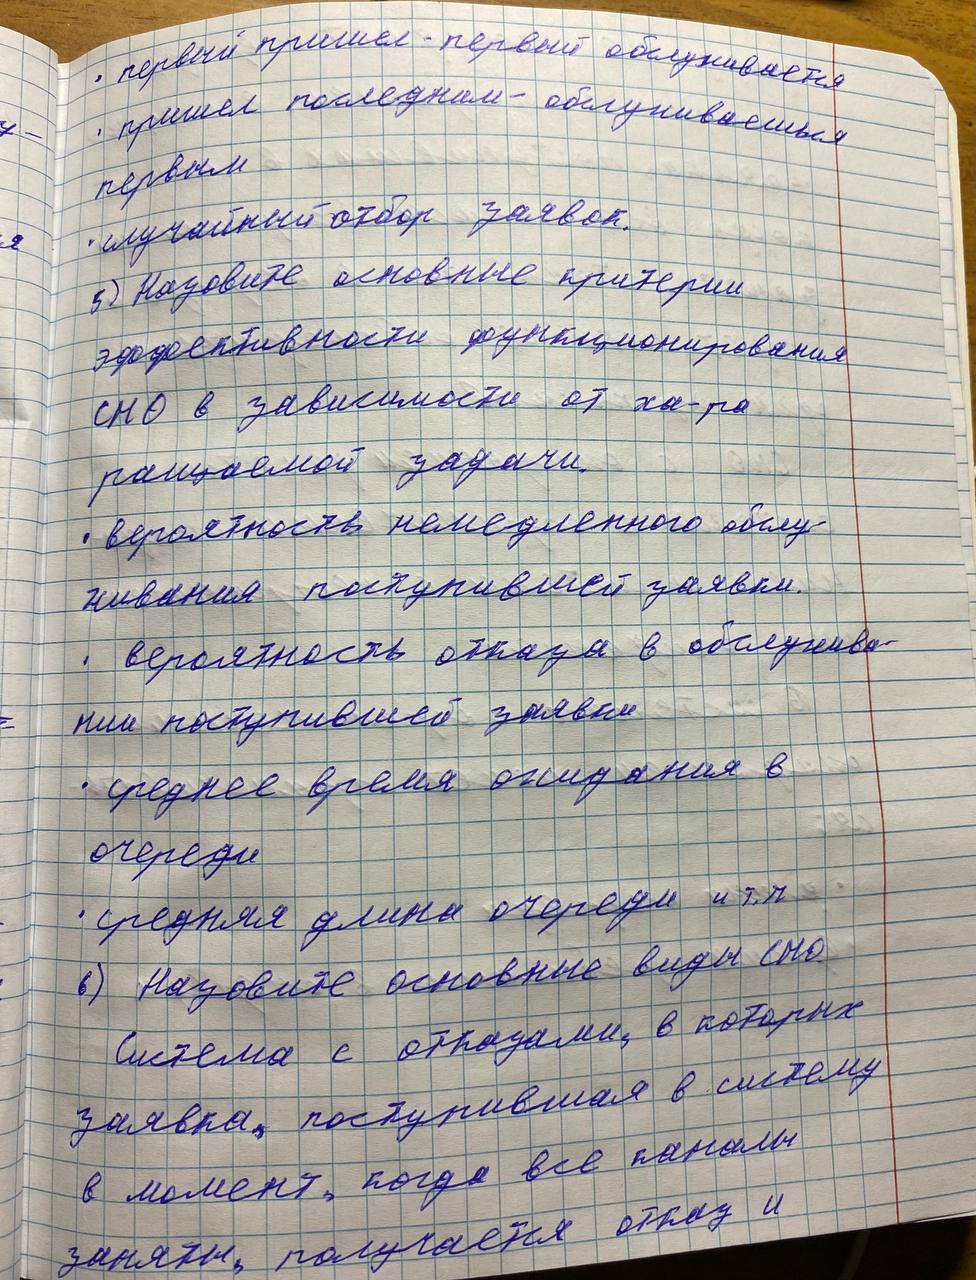 · первый пришел - первый обслуживается
· пришел последним - обслуживаешься
первым
· случайный отбор заявок.
5) Назовите основные критерии
эффективности функционирования
СМО в зависимости от ха-ра
рашаемой задачи.
· вероятность немедленного обслу-
живания поступившей заявки.
· вероятность отказа в обслужива-
нии поступившей заявки
· среднее время ожидания в
очереди
· средняя длина очереди и т.п
6) Назовите основные виды СМО
Система с отказами, в которых
заявка, поступившая в систему
в момент, когда все каналы
заняты, получается отказ и